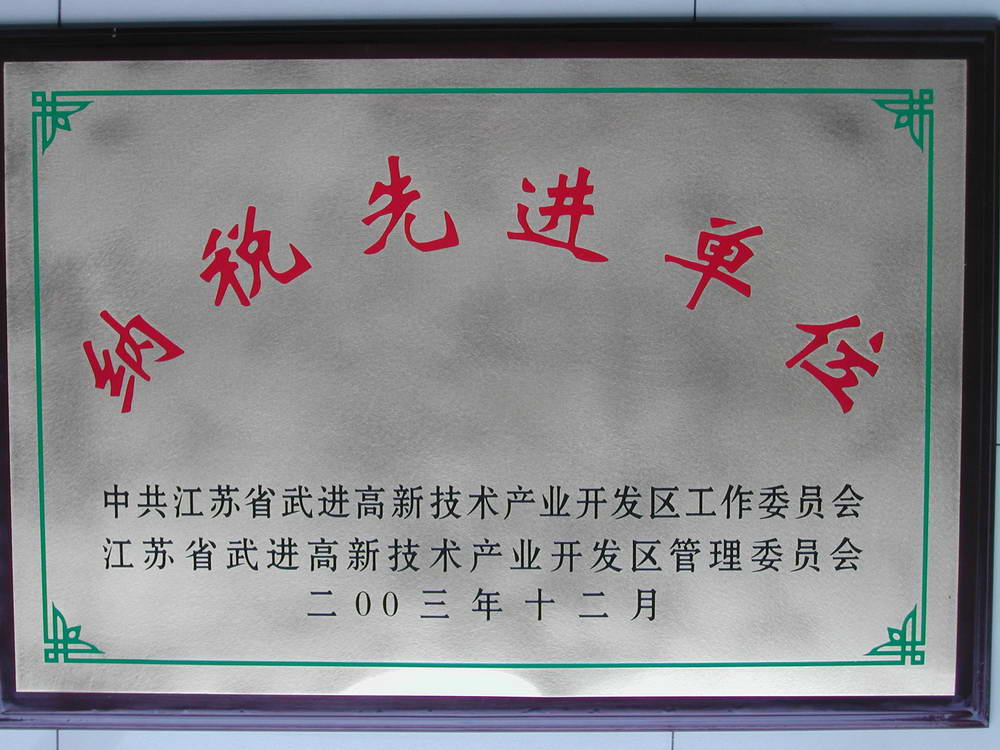 纳税先进单位
中共江苏省武进高新技术产业开发区工作委员会
江苏省武进高新技术产业开发区管理委员会
二00三年十二月